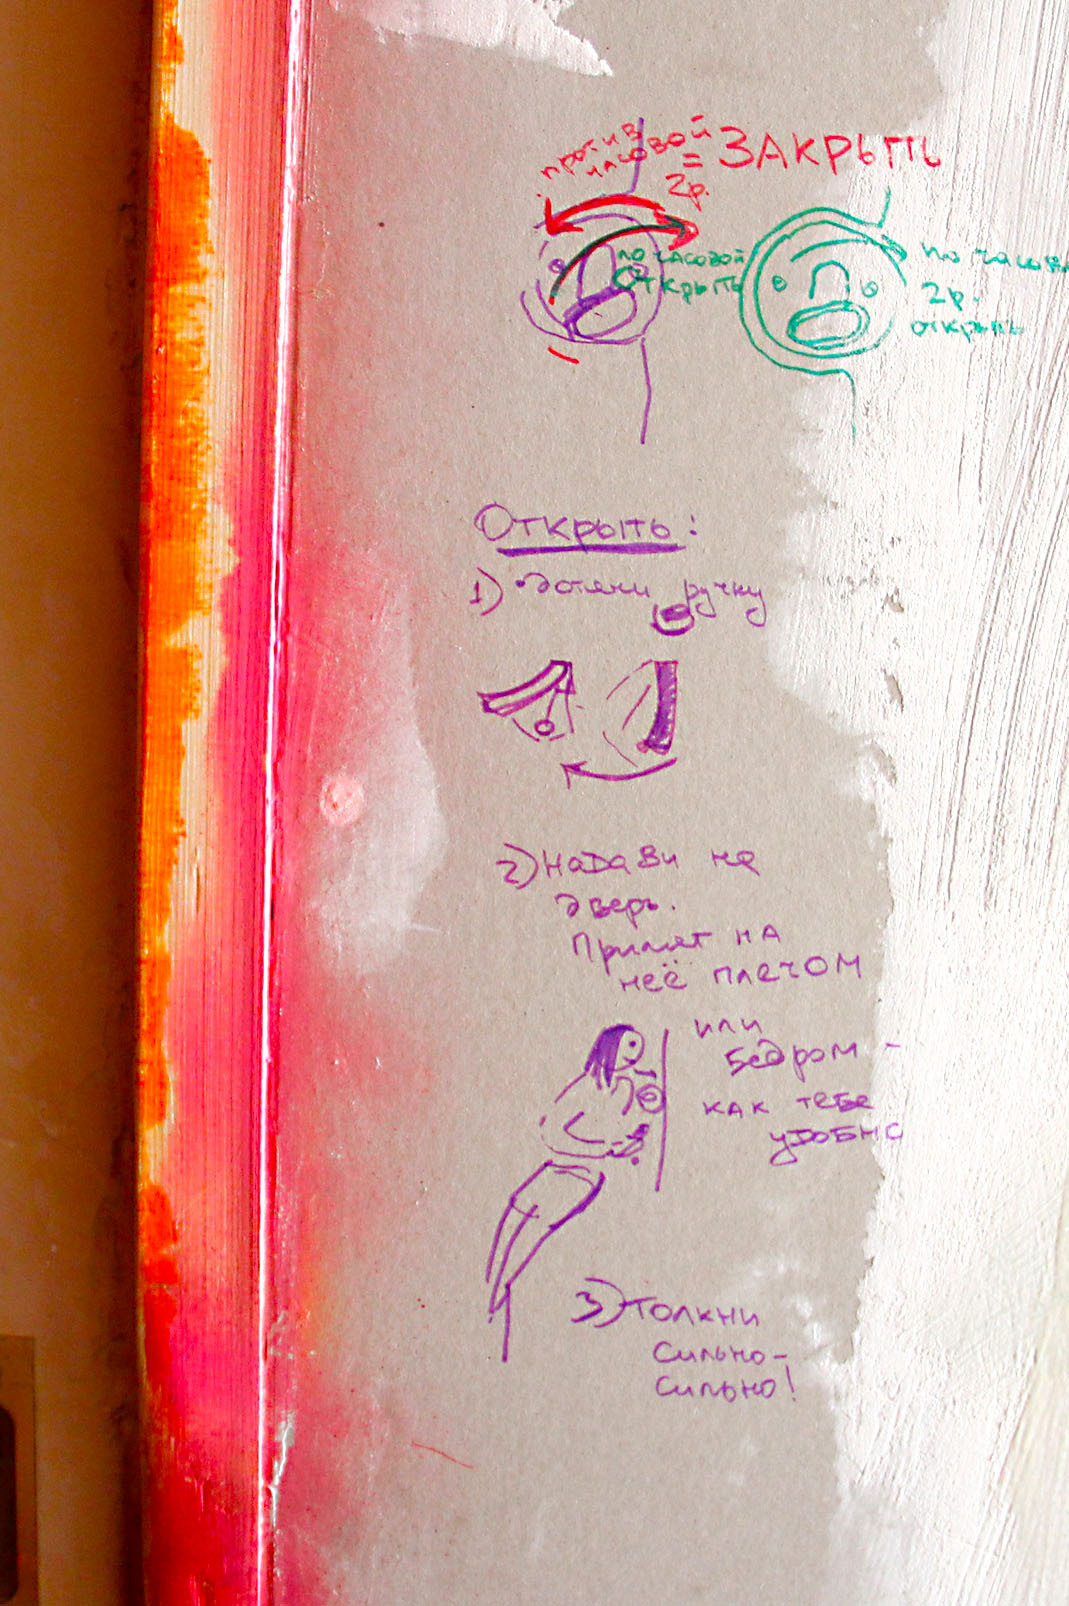 против
часовой
= ЗАКРЫТЬ
2р.
по часовой
ОТКРЫТЬ
по часово
2р.
открыть
Открыть:
1) потяни ручку
2) надави на
дверь.
Приляг на
неё плечом
или
бедром -
как тебе
удобно
3) толкни
сильно-
сильно!